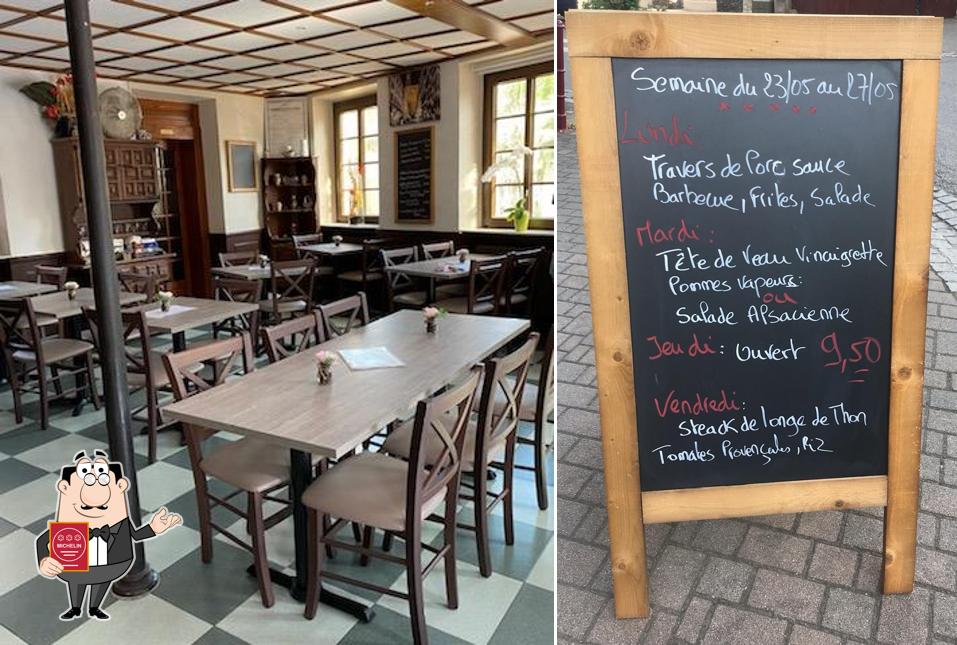 MICHELIN
Semaine du 23/05 au 27/05
Lundi
Travers de Porc sauce
Barbecue, Frites, Salade
Mardi :
Tête de Veau Vinaigrette
Pommes Vapeurs:
ou
Salade Alsacienne
Jeudi : Ouvert 9,50
Vendredi :
Steack de longe de Thon
Tomates Provençales, Riz